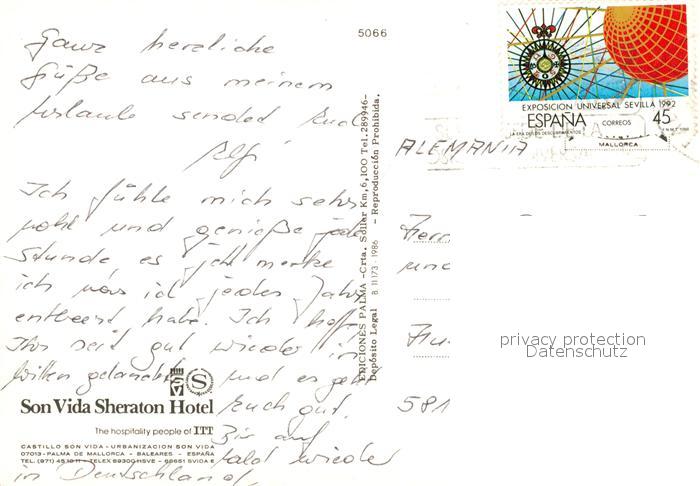 Ganz herzliche
Grüße aus meinem
Urlaub sendet Euch
Ich fühle mich sehr
wohl und genieße jede
Stunde es jetzt merke
ich was ich jedes Jahr
entbeert habe. Ich hoff
Ihr seid gut wieder in
Witten gelandet
und es geht
Euch gut.
Bis auf
bald wieder
in Deutschland.
Son Vida Sheraton Hotel
The hospitality people of ITT
CASTILLO SON VIDA - URBANIZACION SON VIDA
07013 - PALMA DE MALLORCA - BALEARES - ESPAÑA
5066
EDICIONES PALMA -Crta. Sóller Km,6,100 Tel.289946-
Depósito Legal B.11173-1986 - Reproducción Prohibida.
EXPOSICION UNIVERSAL SEVILLA 1992
ESPAÑA CORREOS 45
LA ERA DE LOS DESCUBRIMIENTOS
MALLORCA
ALEMANIA
Herr
und
581
privacy protection
Datenschutz